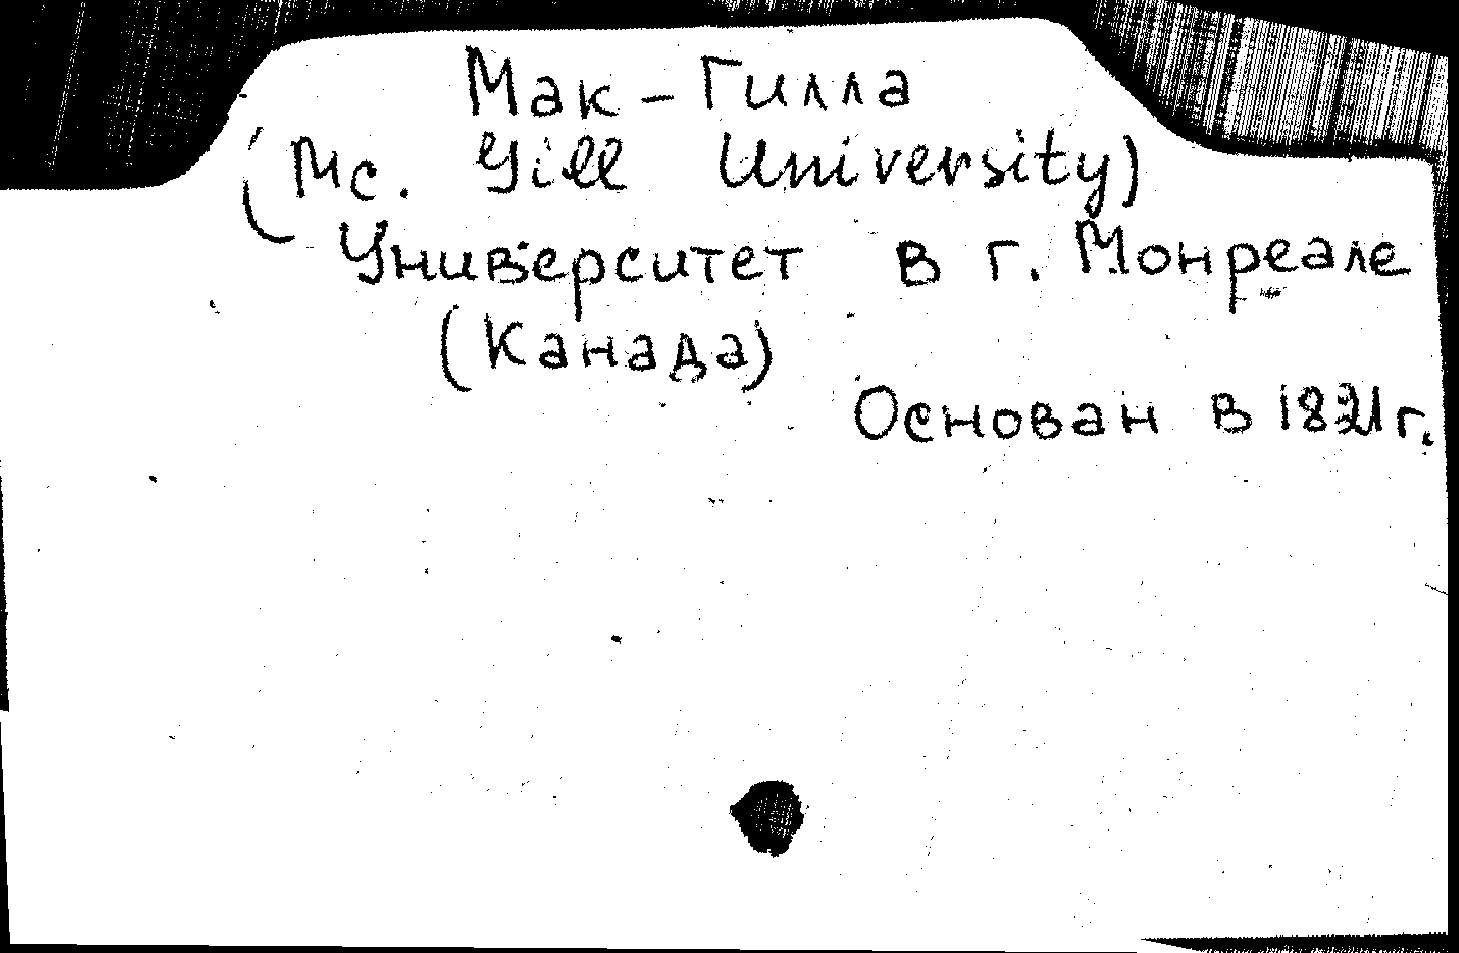 Мак-Гилла
(Mc. Gill University)
Университет в г. Монреале
(Канада)
Основан в 1821 г.